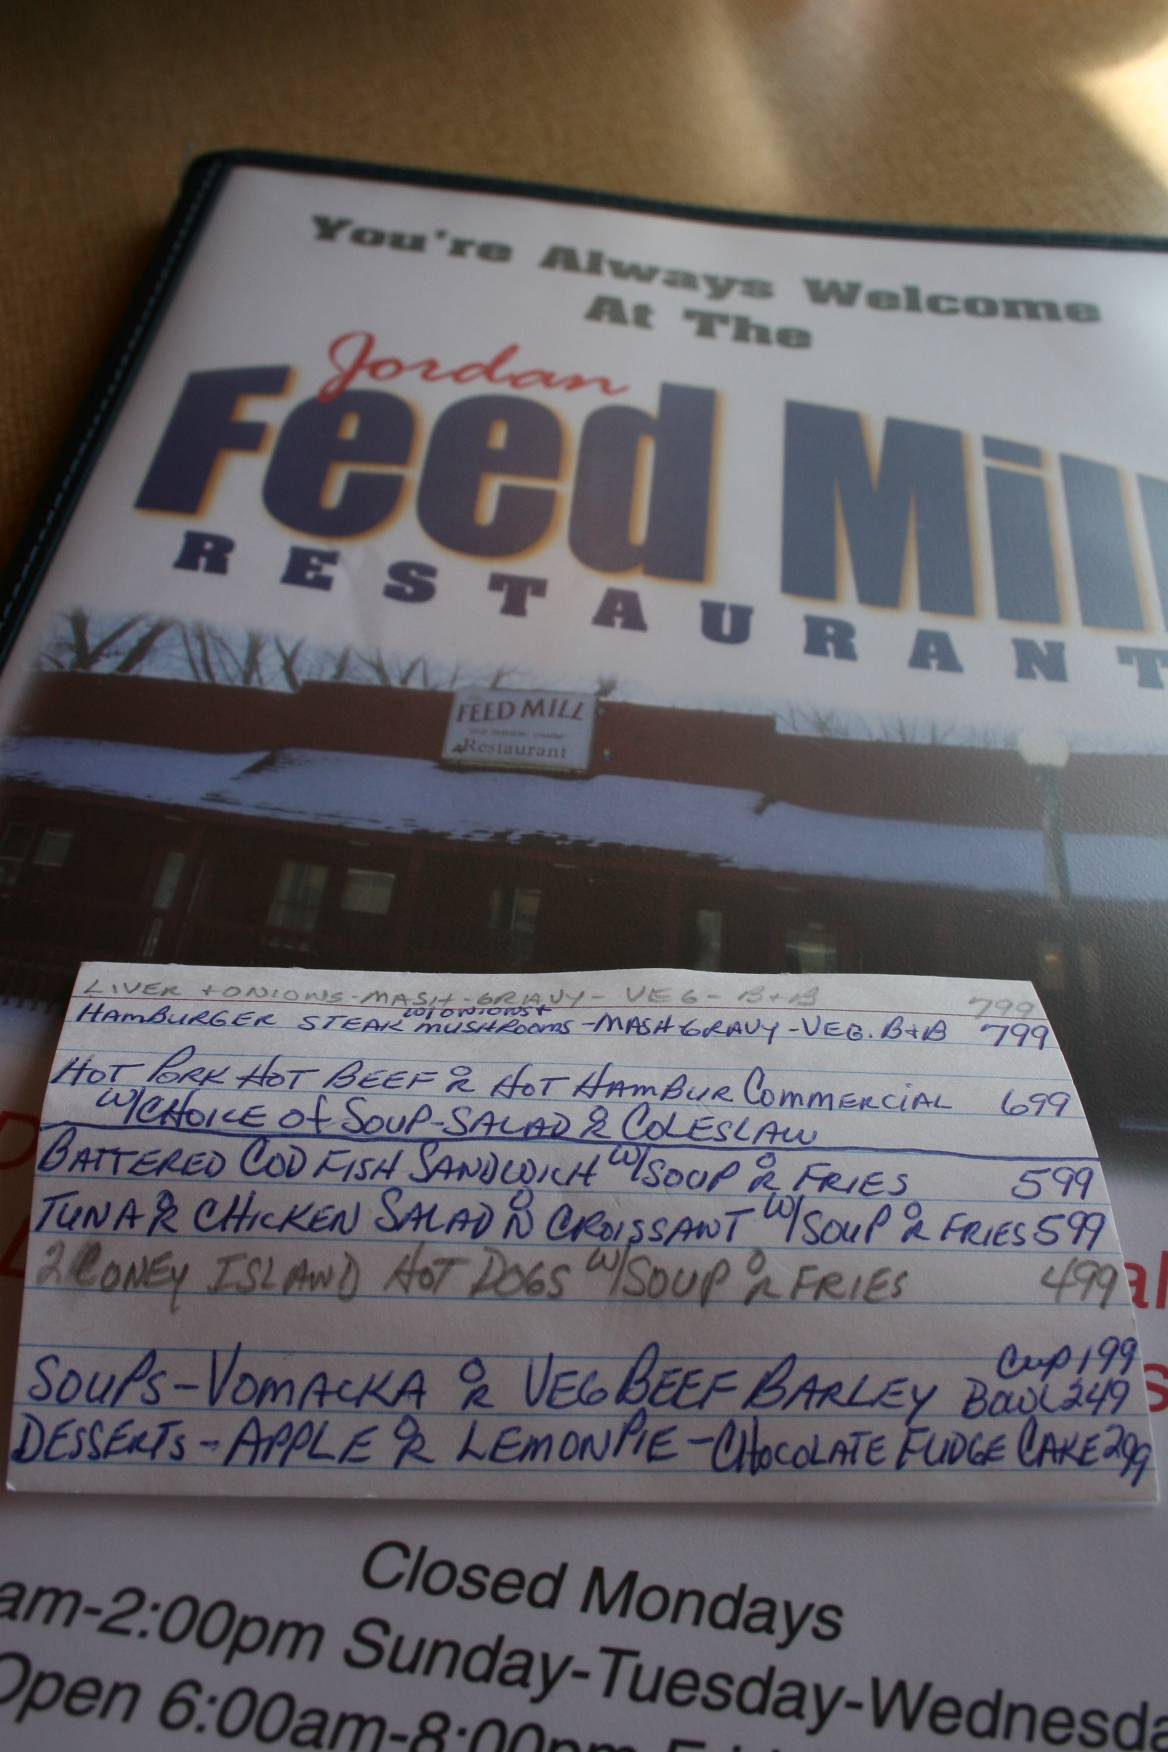 You're Always Welcome
At The
Jordan
Feed Mill
RESTAURANT
FEED MILL
Restaurant
LIVER + ONIONS - MASH - GRAVY - VEG - B+B 799
HAMBURGER STEAK W/ONIONS+ MUSHROOMS - MASH GRAVY - VEG. B+B 799
HOT PORK HOT BEEF OR HOT HAMBUR COMMERCIAL 699
W/CHOICE OF SOUP-SALAD OR COLESLAW
BATTERED COD FISH SANDWICH W/SOUP OR FRIES 599
TUNA OR CHICKEN SALAD ON CROISSANT W/SOUP OR FRIES 599
2 CONEY ISLAND HOT DOGS W/SOUP OR FRIES 499
Cup 199
SOUPS - VOMACKA OR VEG BEEF BARLEY BOWL 249
DESSERTS - APPLE OR LEMON PIE - CHOCOLATE FUDGE CAKE 299
Closed Mondays
am-2:00pm Sunday-Tuesday-Wednesda
Open 6:00am-8:00pm